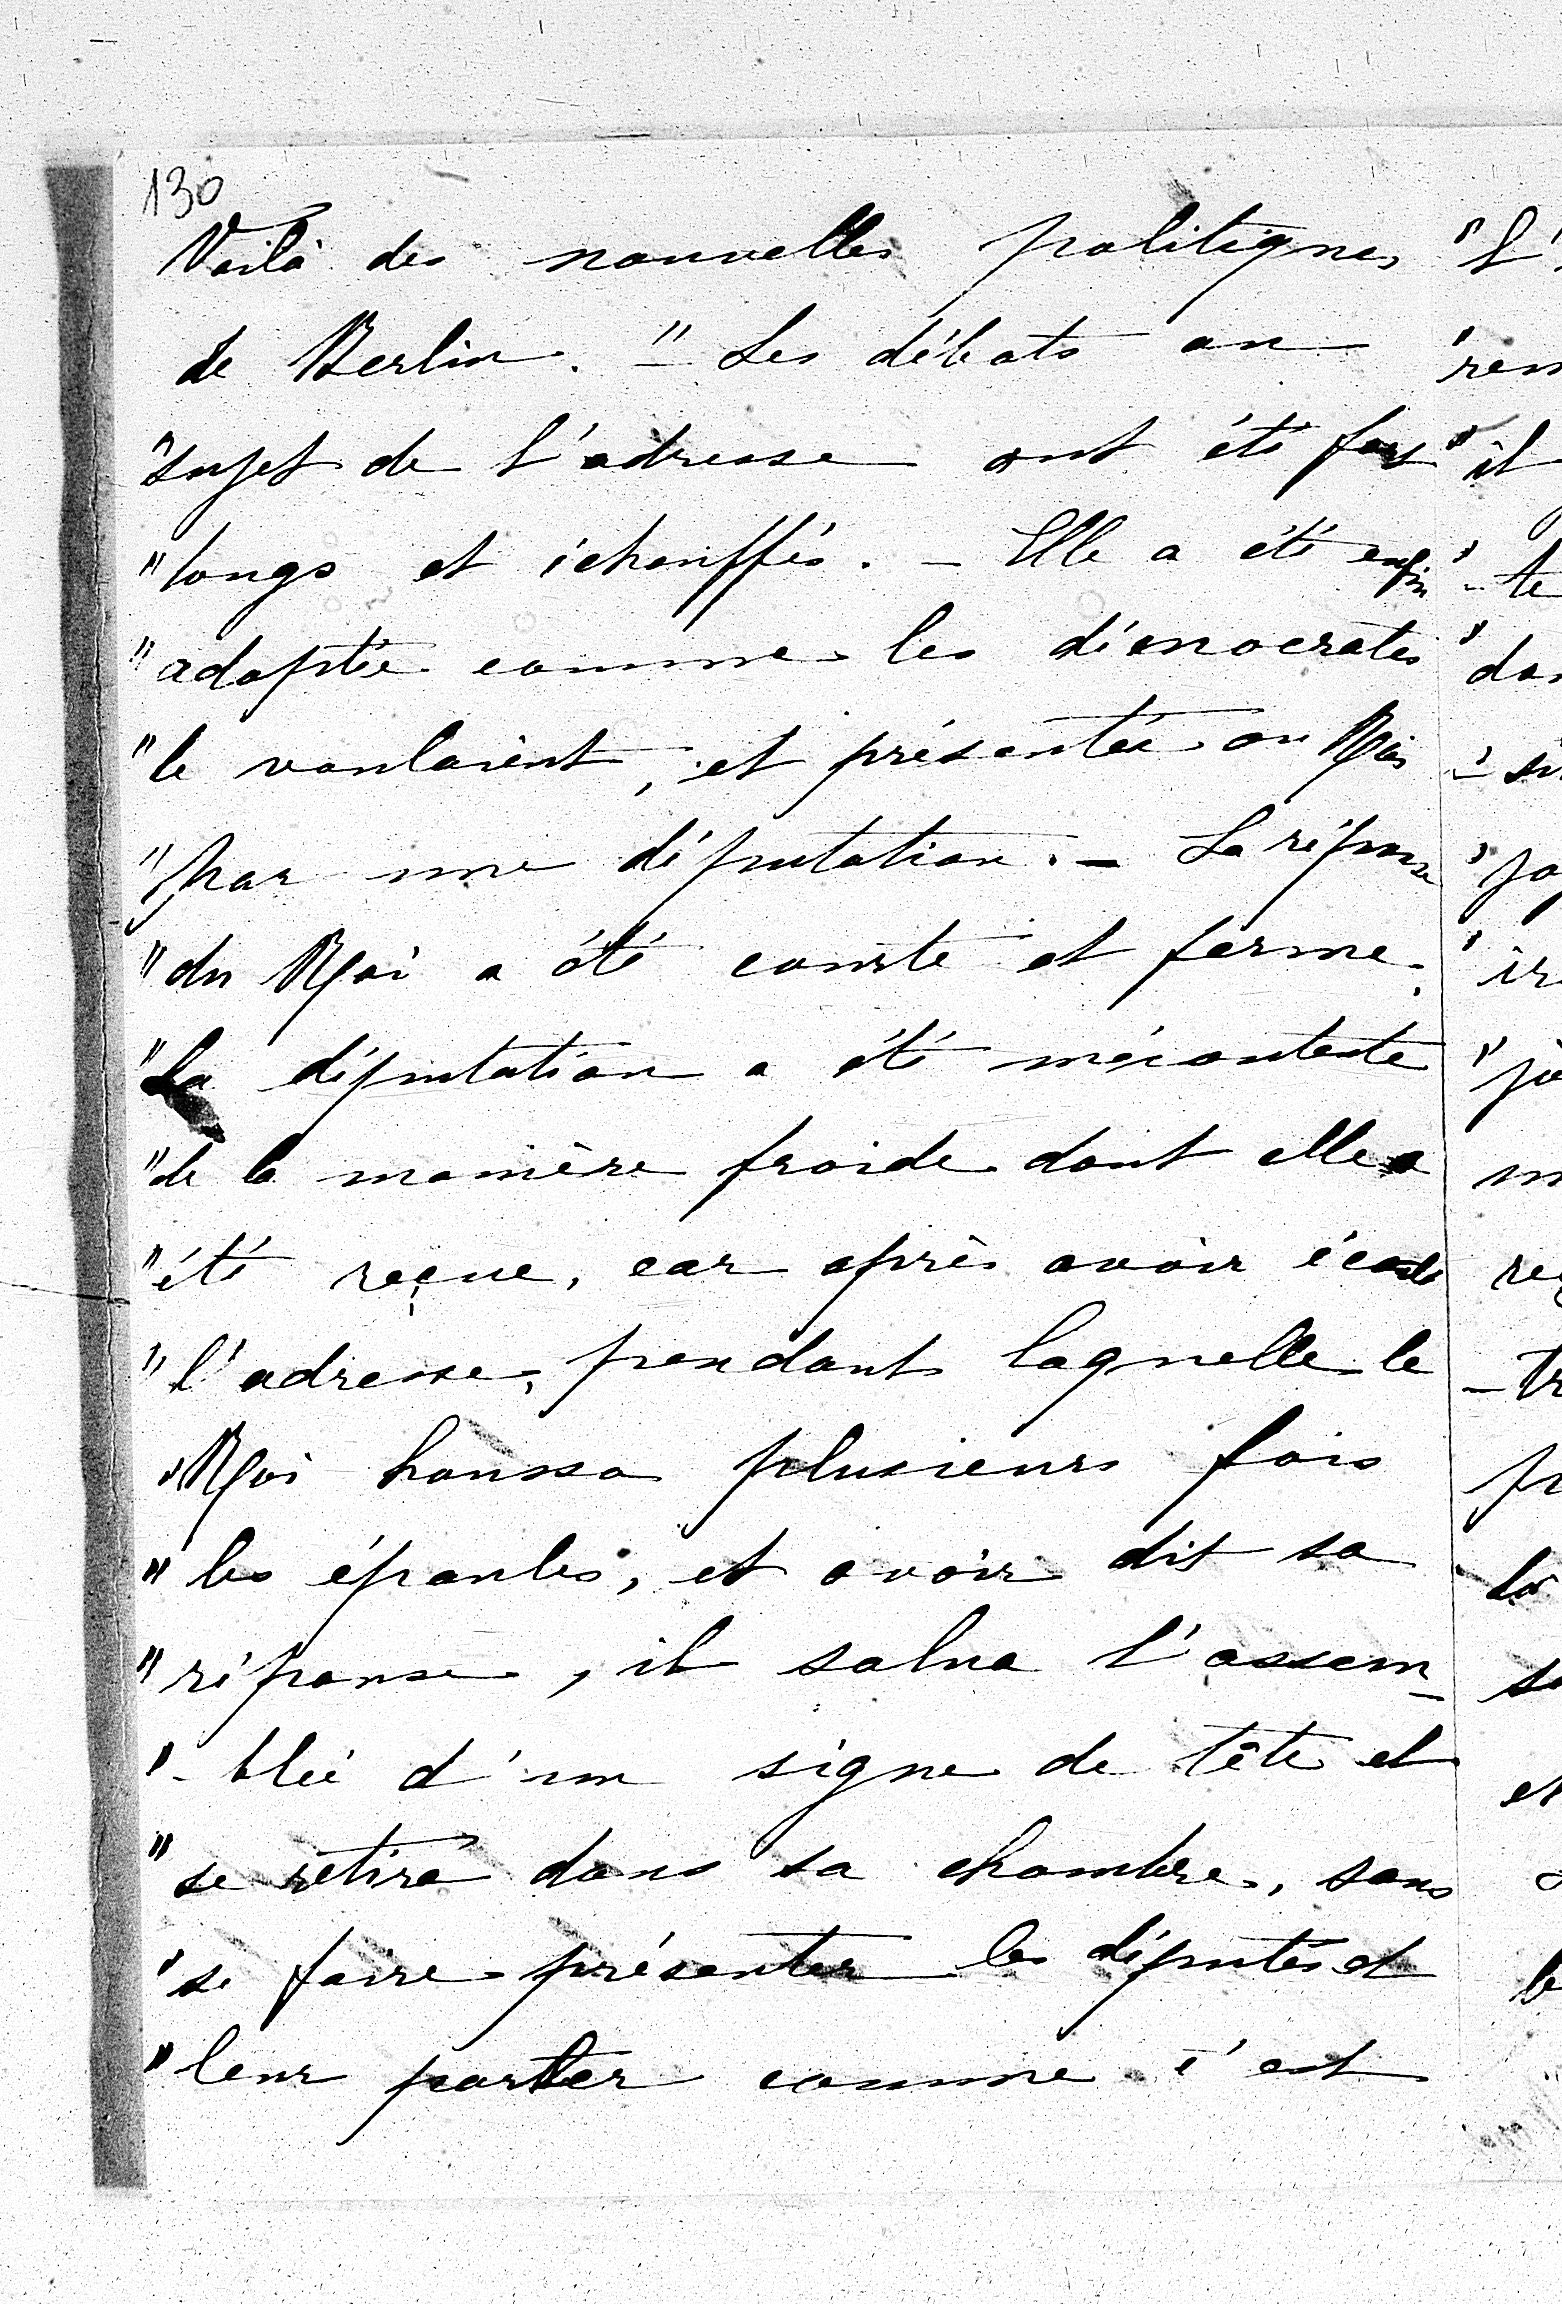 130
Voilà des nouvelles politiques
de Berlin. " - Les débats au
"sujet de l'adresse ont été fort
"longs et échauffés. - Elle a été enfin
"adoptée comme les démocrates
"le voulaient, et présentée au Roi
"par une députation. - La réponse
"du Roi a été courte et ferme.
"La députation a été mécontente
"de la manière froide dont elle a
"été reçue, car après avoir écouté
"l'adresse, pendant laquelle le
"Roi haussa plusieurs fois
"les épaules, et avoir dit sa
"réponse, il salua l'assem-
"-blée d'un signe de tête et
"se retira dans sa chambre, sans
"se faire présenter les députés et
"leur parler comme c'est